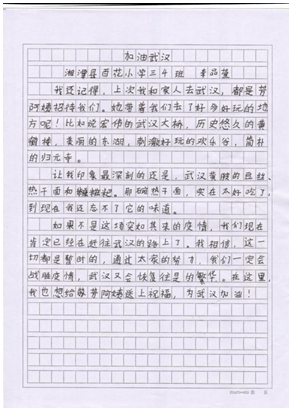 加油武汉
湘潭县百花小学三4班
我还记得，上次我和家人去武汉，都是芳
阿姨招待我们。她带着我们去了好多好玩的地
方呢！比如说宏伟的武汉大桥，历史悠久的黄
鹤楼，美丽的东湖，刺激好玩的欢乐谷，简朴
的归元寺。
让我印象最深刻的还是，武汉
热干面和糍粑。那碗热干面，实在太好吃了，
到现在我还忘不了它的味道。
如果不是这项突如其来的疫情，我们现在
肯定已经在赶往武汉的路上了。我相信，这一
切都是暂时的，通过大家的努力，我们一定会
战胜疫情，武汉又会恢复往昔的繁华。在这里，
我也想给芳阿姨送上祝福，为武汉加油！